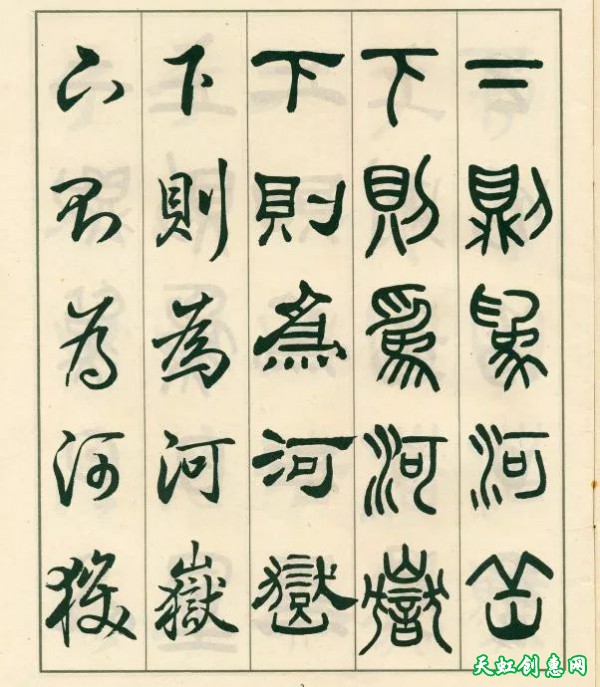 下則爲河岳
下則爲河嶽
下則為河嶽
下則為河嶽
下則為河嶽
天虹创惠网